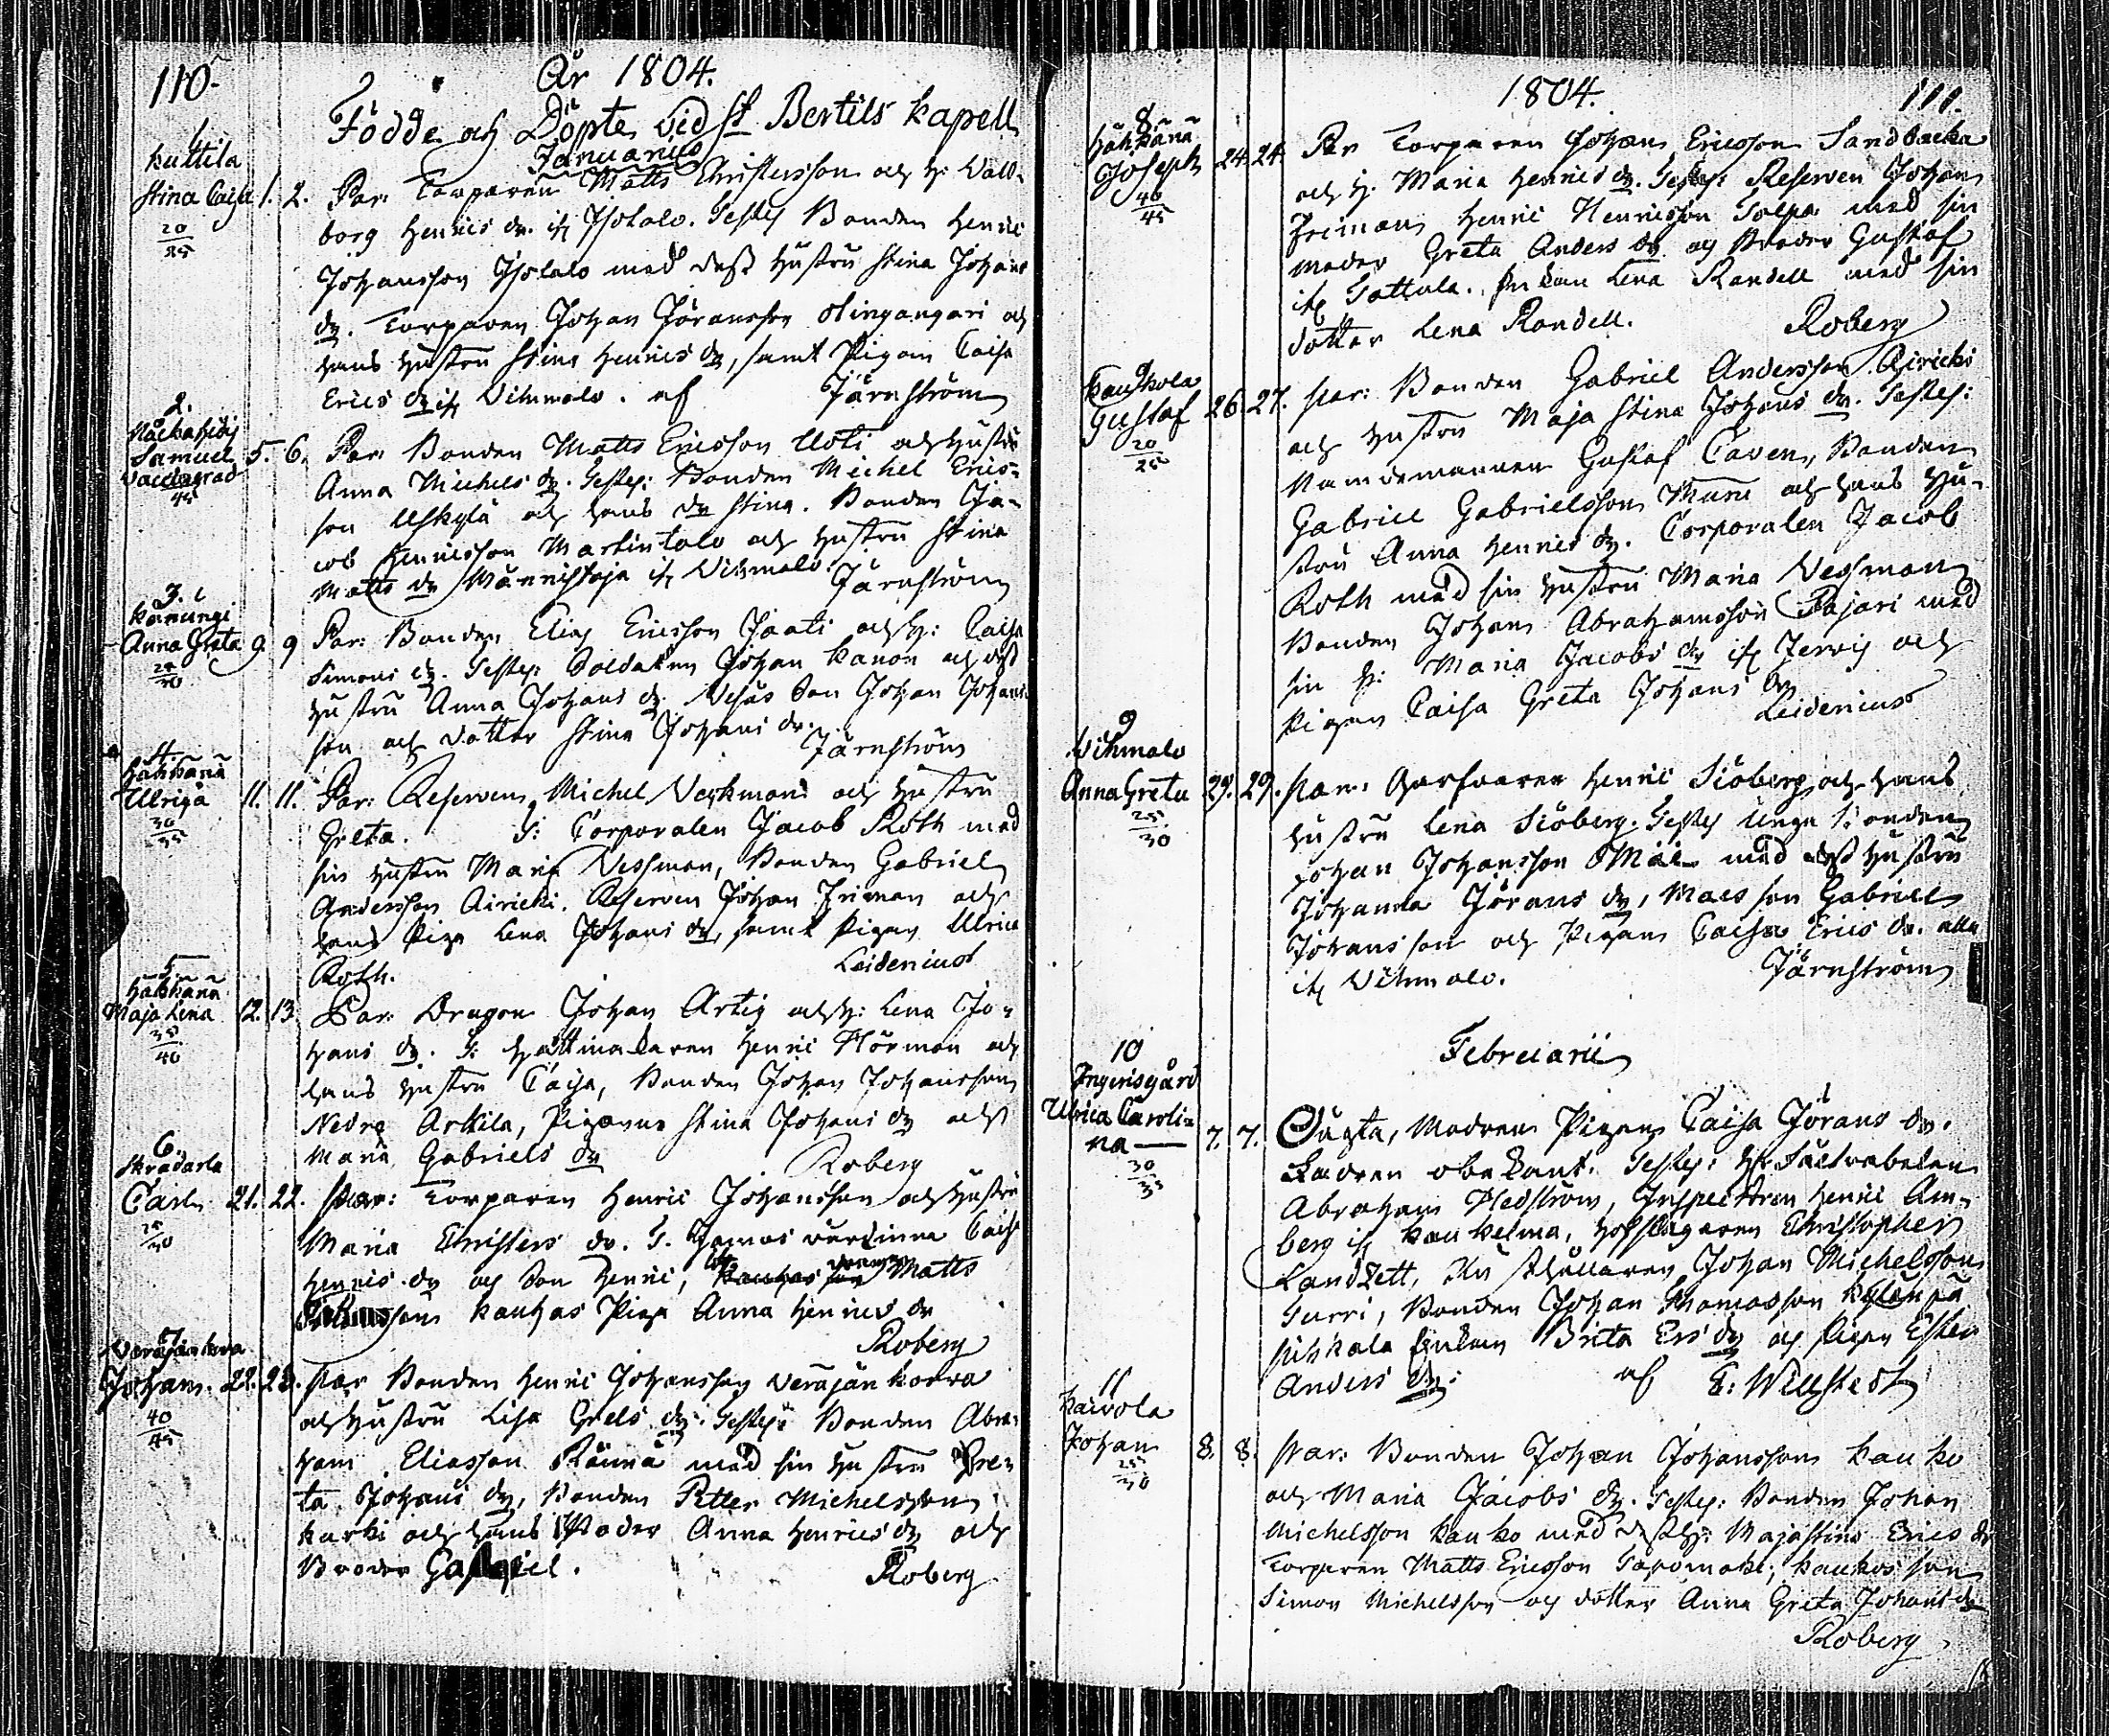 110.
År 1804.
Födde och Döpte vid St Bertils Kapell
Januarius
1
Kuttila
Stina Caisa 1. 2.
20
25
Par: Torparen Matts Christersson och h: Wall-
borg Henrics dr. ifr Isotalo. Testes Bonden Henric
Johansson Isotalo med dess hustru Stina Johans
dr. Torparen Johan Jöransson och
hans hustru Stina Henrics dr, samt Pigan Caisa
Erics dr ifr Vihmalo. af Järnström
2.
Samuel 5. 6.
45
Par: Bonden Matts Ericsson Uoti och hustru
Anna Michels dr. Testes: Bonden Michel Erics-
son Uskylä och hans dr Stina. Bonden Ja-
cob Henricsson Martintalo och hustru Stina
Matts dr Männistöja ifr Vihmalo.
Järnström
3.
Kanungi
Anna Greta 9. 9
Par: Bonden Elias Ericsson Jaati och h: Caisa
Simons dr. Testes: Soldaten Johan Kanon och dess
hustru Anna Johans dr. son Johan Johans-
son och dotter Stina Johans dr.
Järnström
4
Ulrica 11. 11.
30
35
Par: Reserven Michel Veckman och hustru
Greta. T: Corporalen Jacob Roth med
sin hustru Maria Vessman, Bonden Gabriel
Andersson Airicki. Reserven Johan Friman och
hans Piga Lena Johans dr, samt Pigan Ulrica
Roth. Leidenius
5
Maja Lena 12. 13
35
40
Par: Dragon Johan Artig och h: Lena Jo-
hans dr. T: Henric Hörman och
hans hustru Caisa, Bonden Johan Johansson
Nedre Arkila, Pigorna Stina Johans dr och
Maria Gabriels dr
Roberg
6.
Skradarla
Carl 21. 22.
Par: Torparen Henric Johansson och hustru
Maria Christers dr. T. Caisa
Henrics dr och son Henric, Matts
Kauhas Piga Anna Henrics dr
Roberg
7
Veräjänkorva
Johan. 22. 23.
40
45
Par Bonden Henric Johansson Veräjänkorva
och hustru Lisa Grels dr. Testes: Bonden Abra-
ham Eliasson Rännä med sin hustru Gre-
ta Johans dr, Bonden Petter Michelsson
Karhi och hans Moder Anna Henrics dr och
Broder Gabriel. Roberg
1804. 111.
8
Joseph 24. 24.
40
45
Par Torparen Johan Ericsson Sandbacka
och h: Maria Henrics dr. Testes: Reserven Johan
Friman, Henric Henricsson Tolpa med sin
moder Greta Anders dr och Broder Gustaf
ifr Tottula. Enkan Lena Randell med sin
dotter Lena Randell. Roberg
Kaukola
Gustaf 26. 27.
20
25
Par: Bonden Gabriel Andersson Airicki
och hustru Maja Stina Johans dr. Testes:
Nämdemannen Gustaf Caven, Bonden
Gabriel Gabrielsson och hans hu-
stru Anna Henrics dr. Corporalen Jacob
Roth med sin hustru Maria Vessman,
Bonden Johan Abrahamsson Pajari med
sin h: Maria Jacobs dr ifr Jervis och
Pigan Caisa Greta Johans dr
Leidenius
9
Vihmalo
Anna Greta 29. 29.
25
30
Par: Garfvaren Henric Siöberg och hans
hustru Lena Siöberg. Testes Unga Bonden
Johan Johansson Mäl med dess hustru
Johanna Jörans dr, Måes son Gabriel
Johansson och Pigan Caisa Erics dr. alla
ifr Vihmalo. Järnström
Februarii
10
Ingerisgård
Ulrica Caroli-
na — 7. 7.
30
35
Oäkta, Modren Pigan Caisa Jörans dr.
Fadren obekant. Testes: Hr Fältväbelen
Abraham Hedström, Inspectoren Henric Am-
berg ifr Kaukelma, Hofslagaren Christopher
Landzett, Johan Michelsson
Turri, Bonden Johan Thomasson Kylänpä
Pihkala Enkan Brita Ers dr och Pigan Ester
Anders dr: af E: Willstedt
11
Kaivola
Johan 8. 8.
25
30
Par: Bonden Johan Johansson Kauko
och Maria Jacobs dr. Testes: Bonden Johan
Michelsson Kauko med dess h: Maja Stina Erics dr
Torparen Matts Ericsson Tavomaki, Kaukos son
Simon Michelsson och dotter Anna Greta Johans dr
Roberg